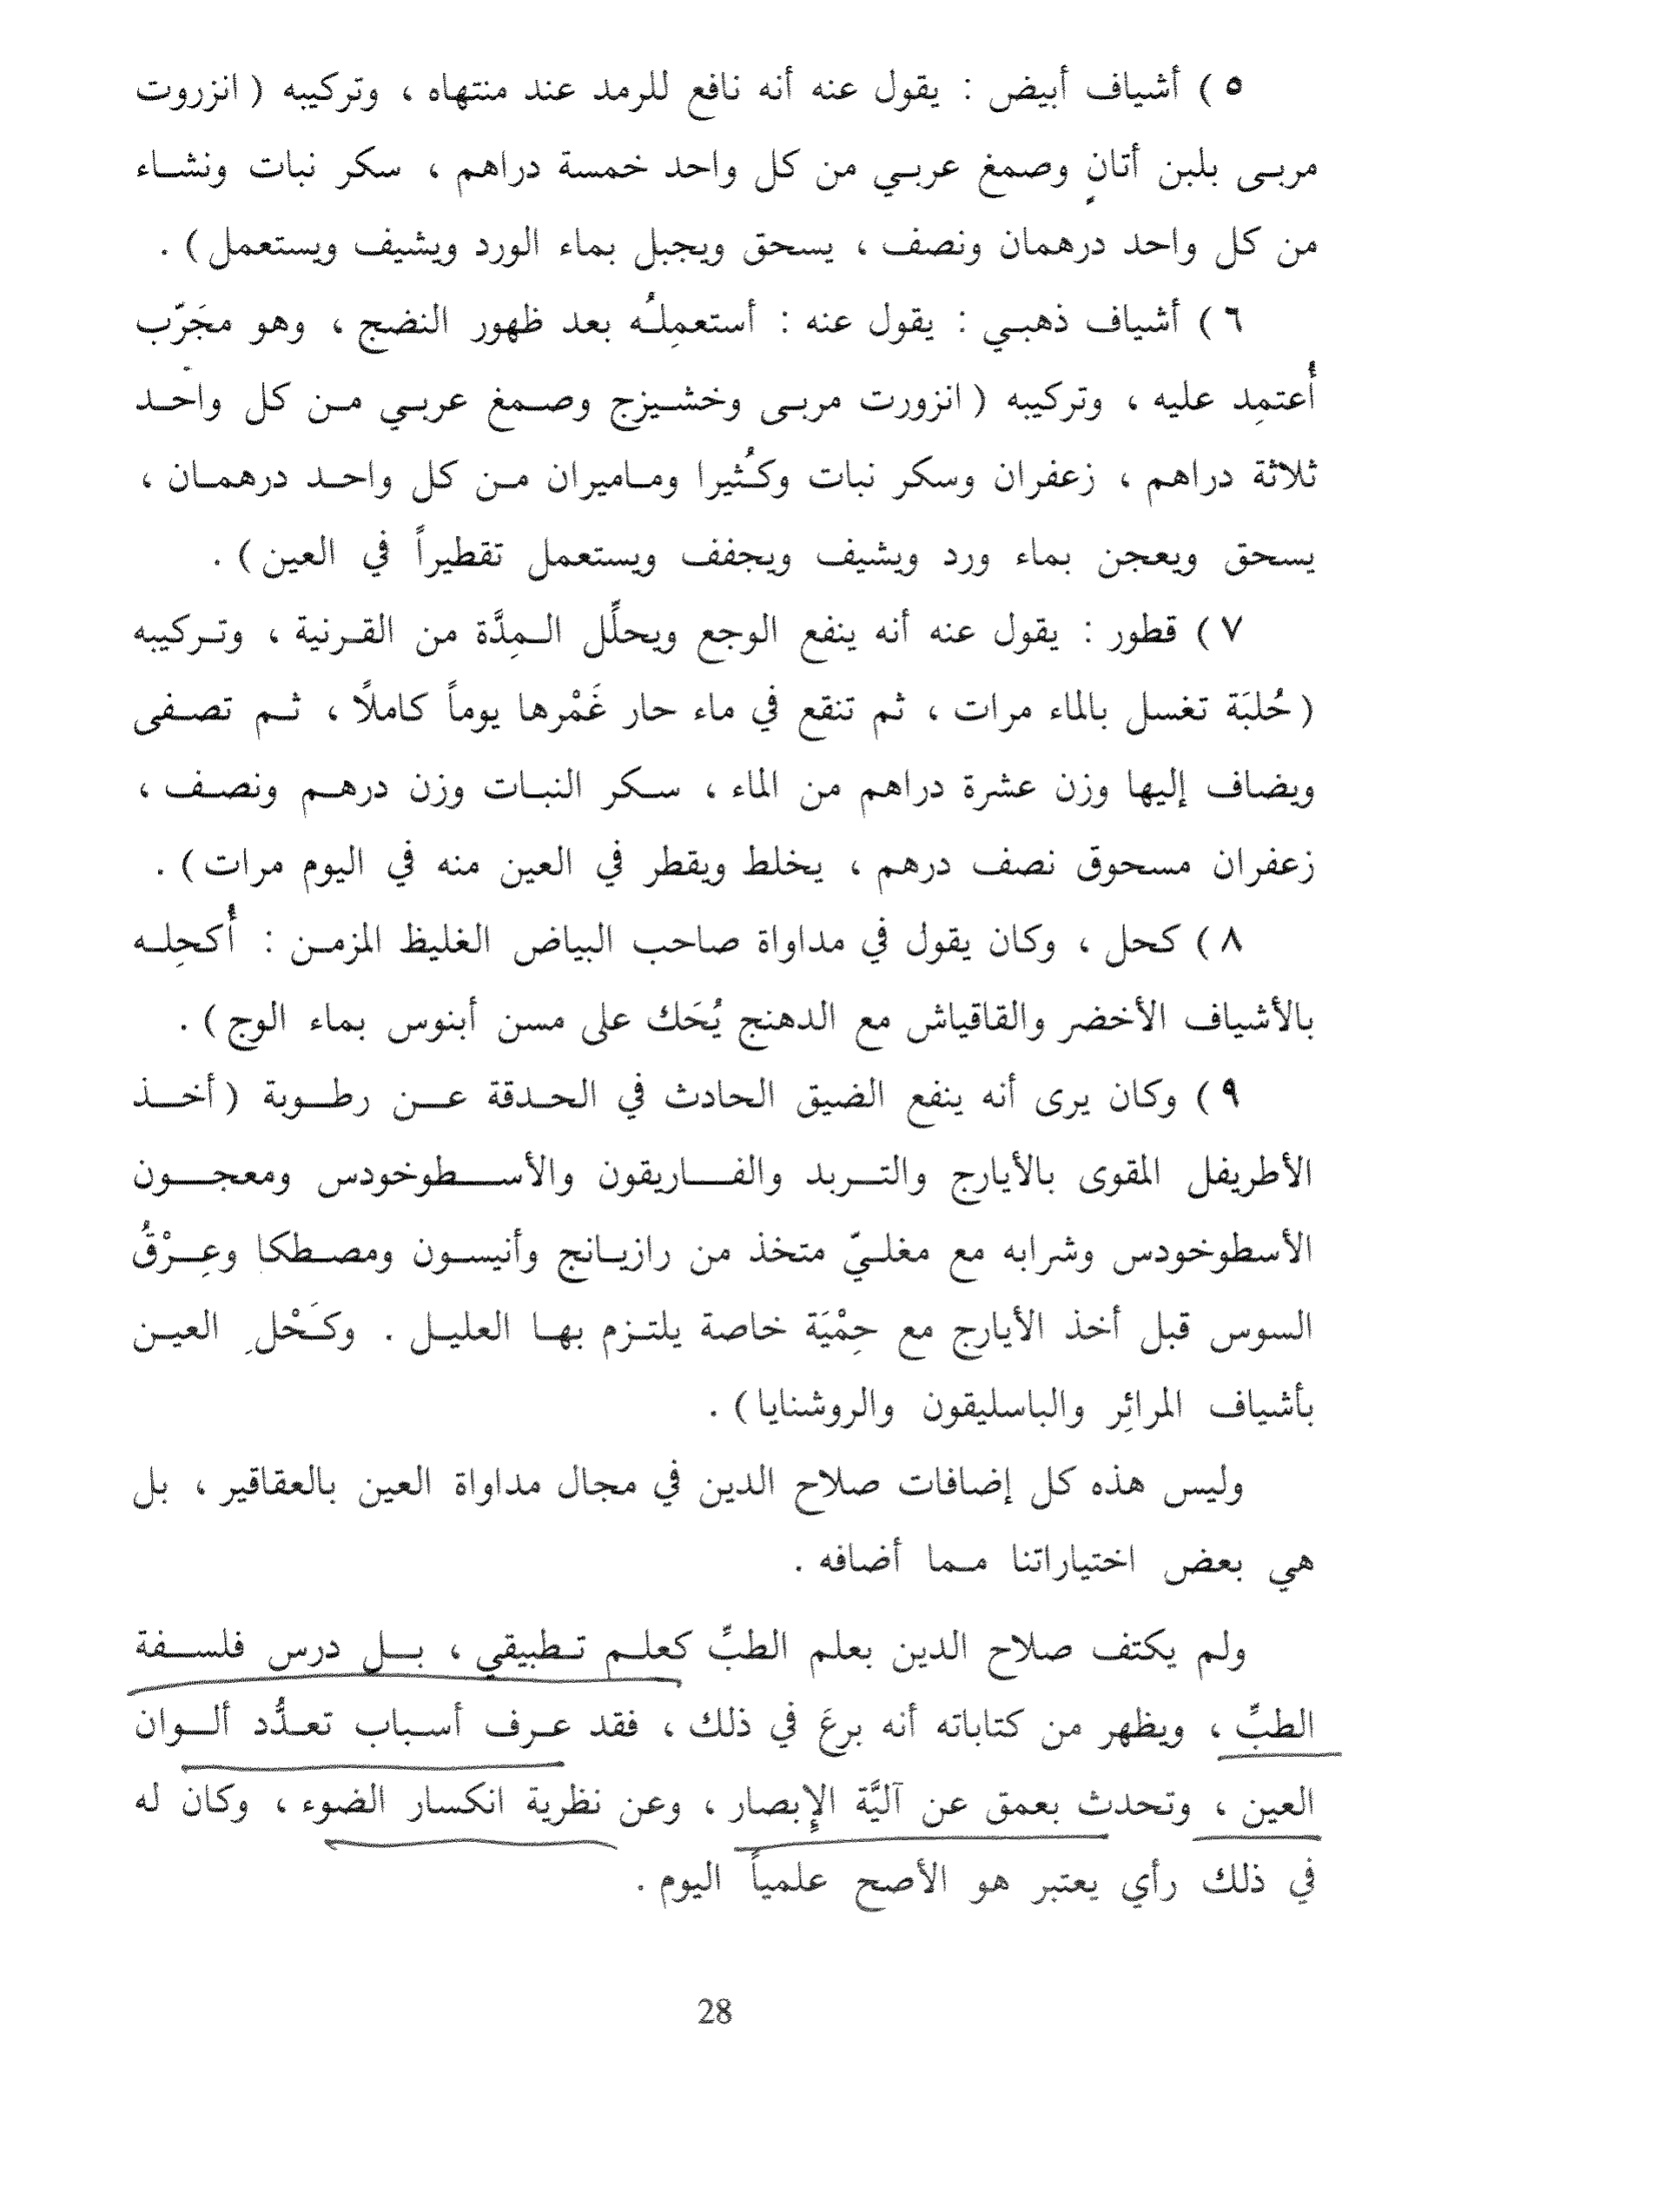 ٥) أشياف أبيض : يقول عنه أنه نافع للرمد عند منتهاه ، وتركيبه (انزروت
مربى بلبن أتانٍ وصمغ عربي من كل واحد خمسة دراهم ، سكر نبات ونشاء
من كل واحد درهمان ونصف ، يسحق ويجبل بماء الورد ويشيف ويستعمل) .
٦) أشياف ذهبي : يقول عنه : أستعمِلُه بعد ظهور النضج ، وهو مجَرّب
أُعتمِد عليه ، وتركيبه (انزورت مربى وخشيزج وصمغ عربي من كل واحد
ثلاثة دراهم ، زعفران وسكر نبات وكُثيرا وماميران من كل واحد درهمان ،
يسحق ويعجن بماء ورد ويشيف ويجفف ويستعمل تقطيراً في العين) .
٧) قطور : يقول عنه أنه ينفع الوجع ويحلِّل المِدَّة من القرنية ، وتركيبه
(حُلبَة تغسل بالماء مرات ، ثم تنقع في ماء حار غَمْرها يوماً كاملًا ، ثم تصفى
ويضاف إليها وزن عشرة دراهم من الماء ، سكر النبات وزن درهم ونصف ،
زعفران مسحوق نصف درهم ، يخلط ويقطر في العين منه في اليوم مرات) .
٨) كحل ، وكان يقول في مداواة صاحب البياض الغليظ المزمن : أُكحِله
بالأشياف الأخضر والقاقياش مع الدهنج يُحَك على مسن أبنوس بماء الوج) .
٩) وكان يرى أنه ينفع الضيق الحادث في الحدقة عن رطوبة (أخذ
الأطريفل المقوى بالأيارج والتربد والفاريقون والأسطوخودس ومعجون
الأسطوخودس وشرابه مع مغليّ متخذ من رازيانج وأنيسون ومصطكا وعِرْقُ
السوس قبل أخذ الأيارج مع حِمْيَة خاصة يلتزم بها العليل . وكَحْلِ العين
بأشياف المرائِر والباسليقون والروشنايا) .
وليس هذه كل إضافات صلاح الدين في مجال مداواة العين بالعقاقير ، بل
هي بعض اختياراتنا مما أضافه .
ولم يكتف صلاح الدين بعلم الطبِّ كعلم تطبيقي ، بل درس فلسفة
الطبِّ ، ويظهر من كتاباته أنه برعَ في ذلك ، فقد عرف أسباب تعدُّد ألوان
العين ، وتحدث بعمق عن آليَّة الإِبصار ، وعن نظرية انكسار الضوء ، وكان له
في ذلك رأي يعتبر هو الأصح علمياً اليوم .
28